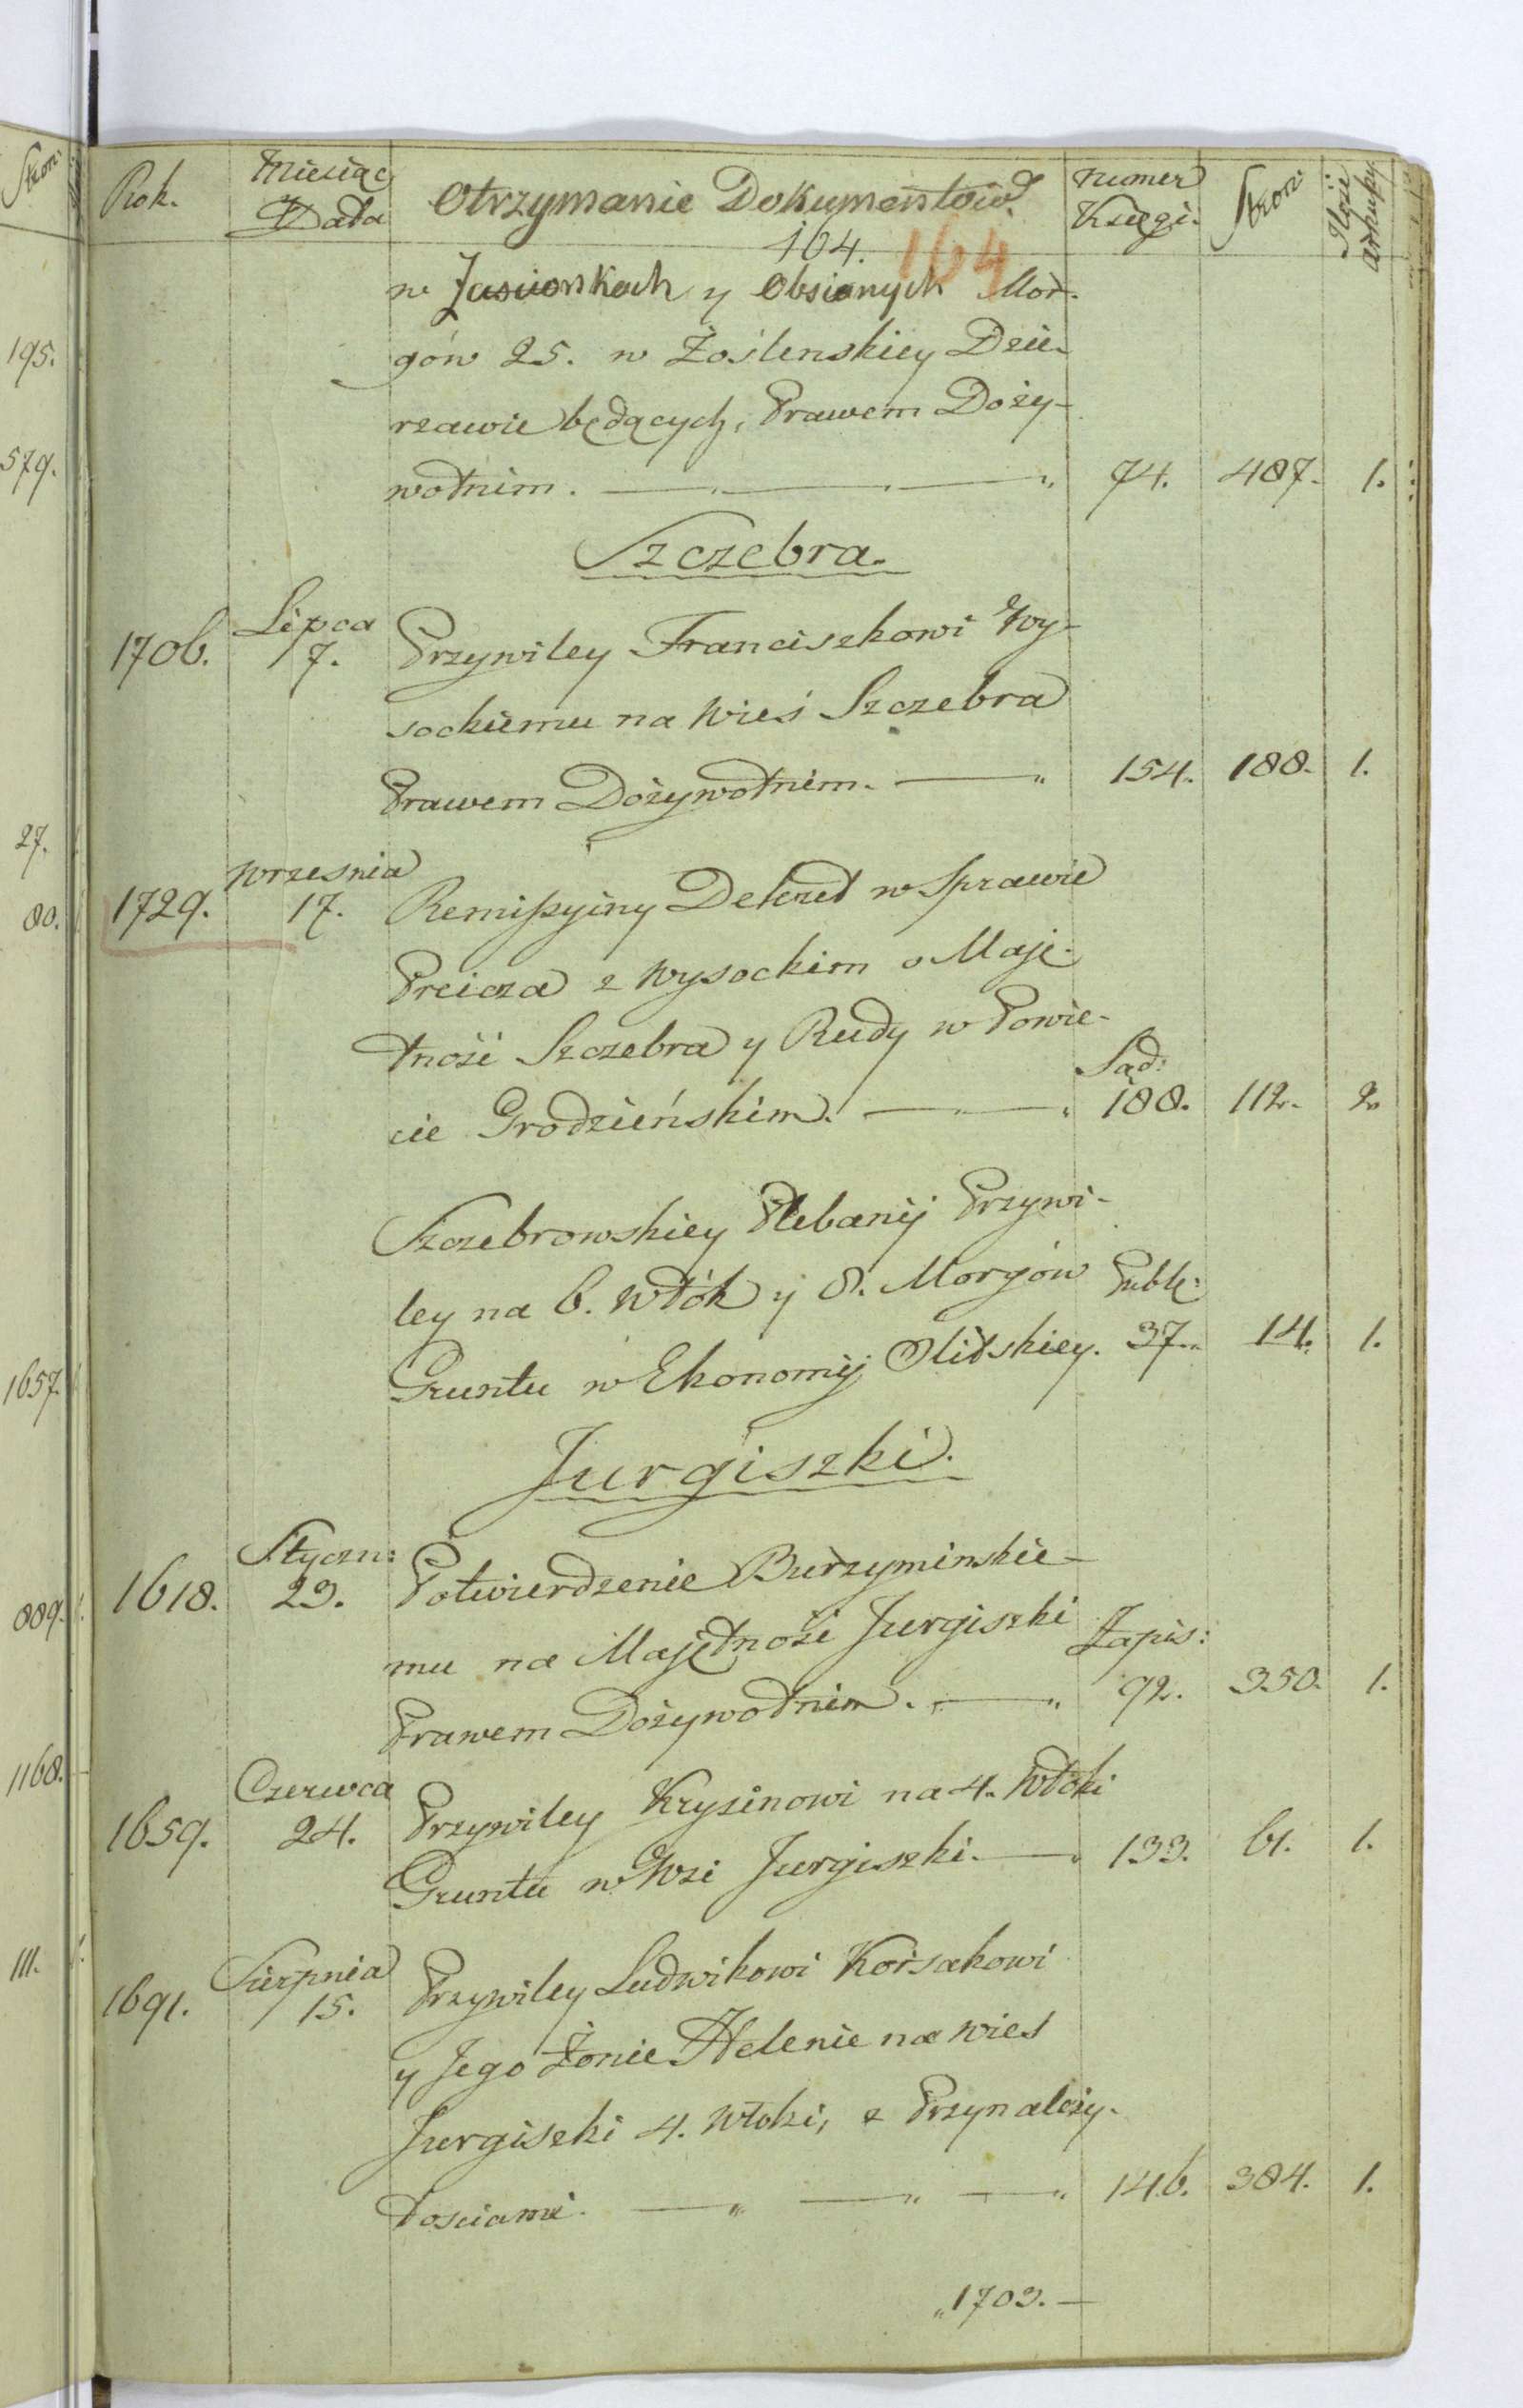 Stron:
195.
579.
27.
80.
1657.
889.
1168.
111.
Rok.
Miesiąc
Data
Otrzymanie Dokumentów.
Numer
Księgi.
Stron:
Ilość
arkuszy
104. 164
w Jasionskach y Obsianych Mor-
gów 25. w Żoślenskiey Dzie-
rzawie będących, Prawem Doży-
wotnim. 74. 487. 1.
Szczebra.
Lipca
1706. 7. Przywiley Franciszkowi Wy-
sockiemu na Wieś Szczebra
Prawem Dożywotnim. 154. 188. 1.
Wrzesnia
1729. 17. Remissyiny Dekret w Sprawie
Preicza z Wysockim o Maję-
tność Szczebra y Rudy w Powie-
Sąd:
cie Grodzieńskim. 188. 112. 2.
Szczebrowskiey Plebanij Przywi-
ley na 6. Włók y 8. Morgów Publ:
Gruntu w Ekonomij Olitskiey. 37. 14. 1.
Jurgiszki.
Styczn:
1618. 23. Potwierdzenie Burzyminskie-
mu na Majętność Jurgiszki Zapis:
Prawem Dożywotnim. 92. 350. 1.
Czerwca
1659. 24. Przywiley Krysinowi na 4. Włoki
Gruntu w Wsi Jurgiszki. 133. 61. 1.
Sierpnia
1691. 15. Przywiley Ludwikowi Korsakowi
y Jego Żonie Helenie na Wies
Jurgiszki 4. Włoki, z Przynależy-
tosciami. 146. 384. 1.
1703.